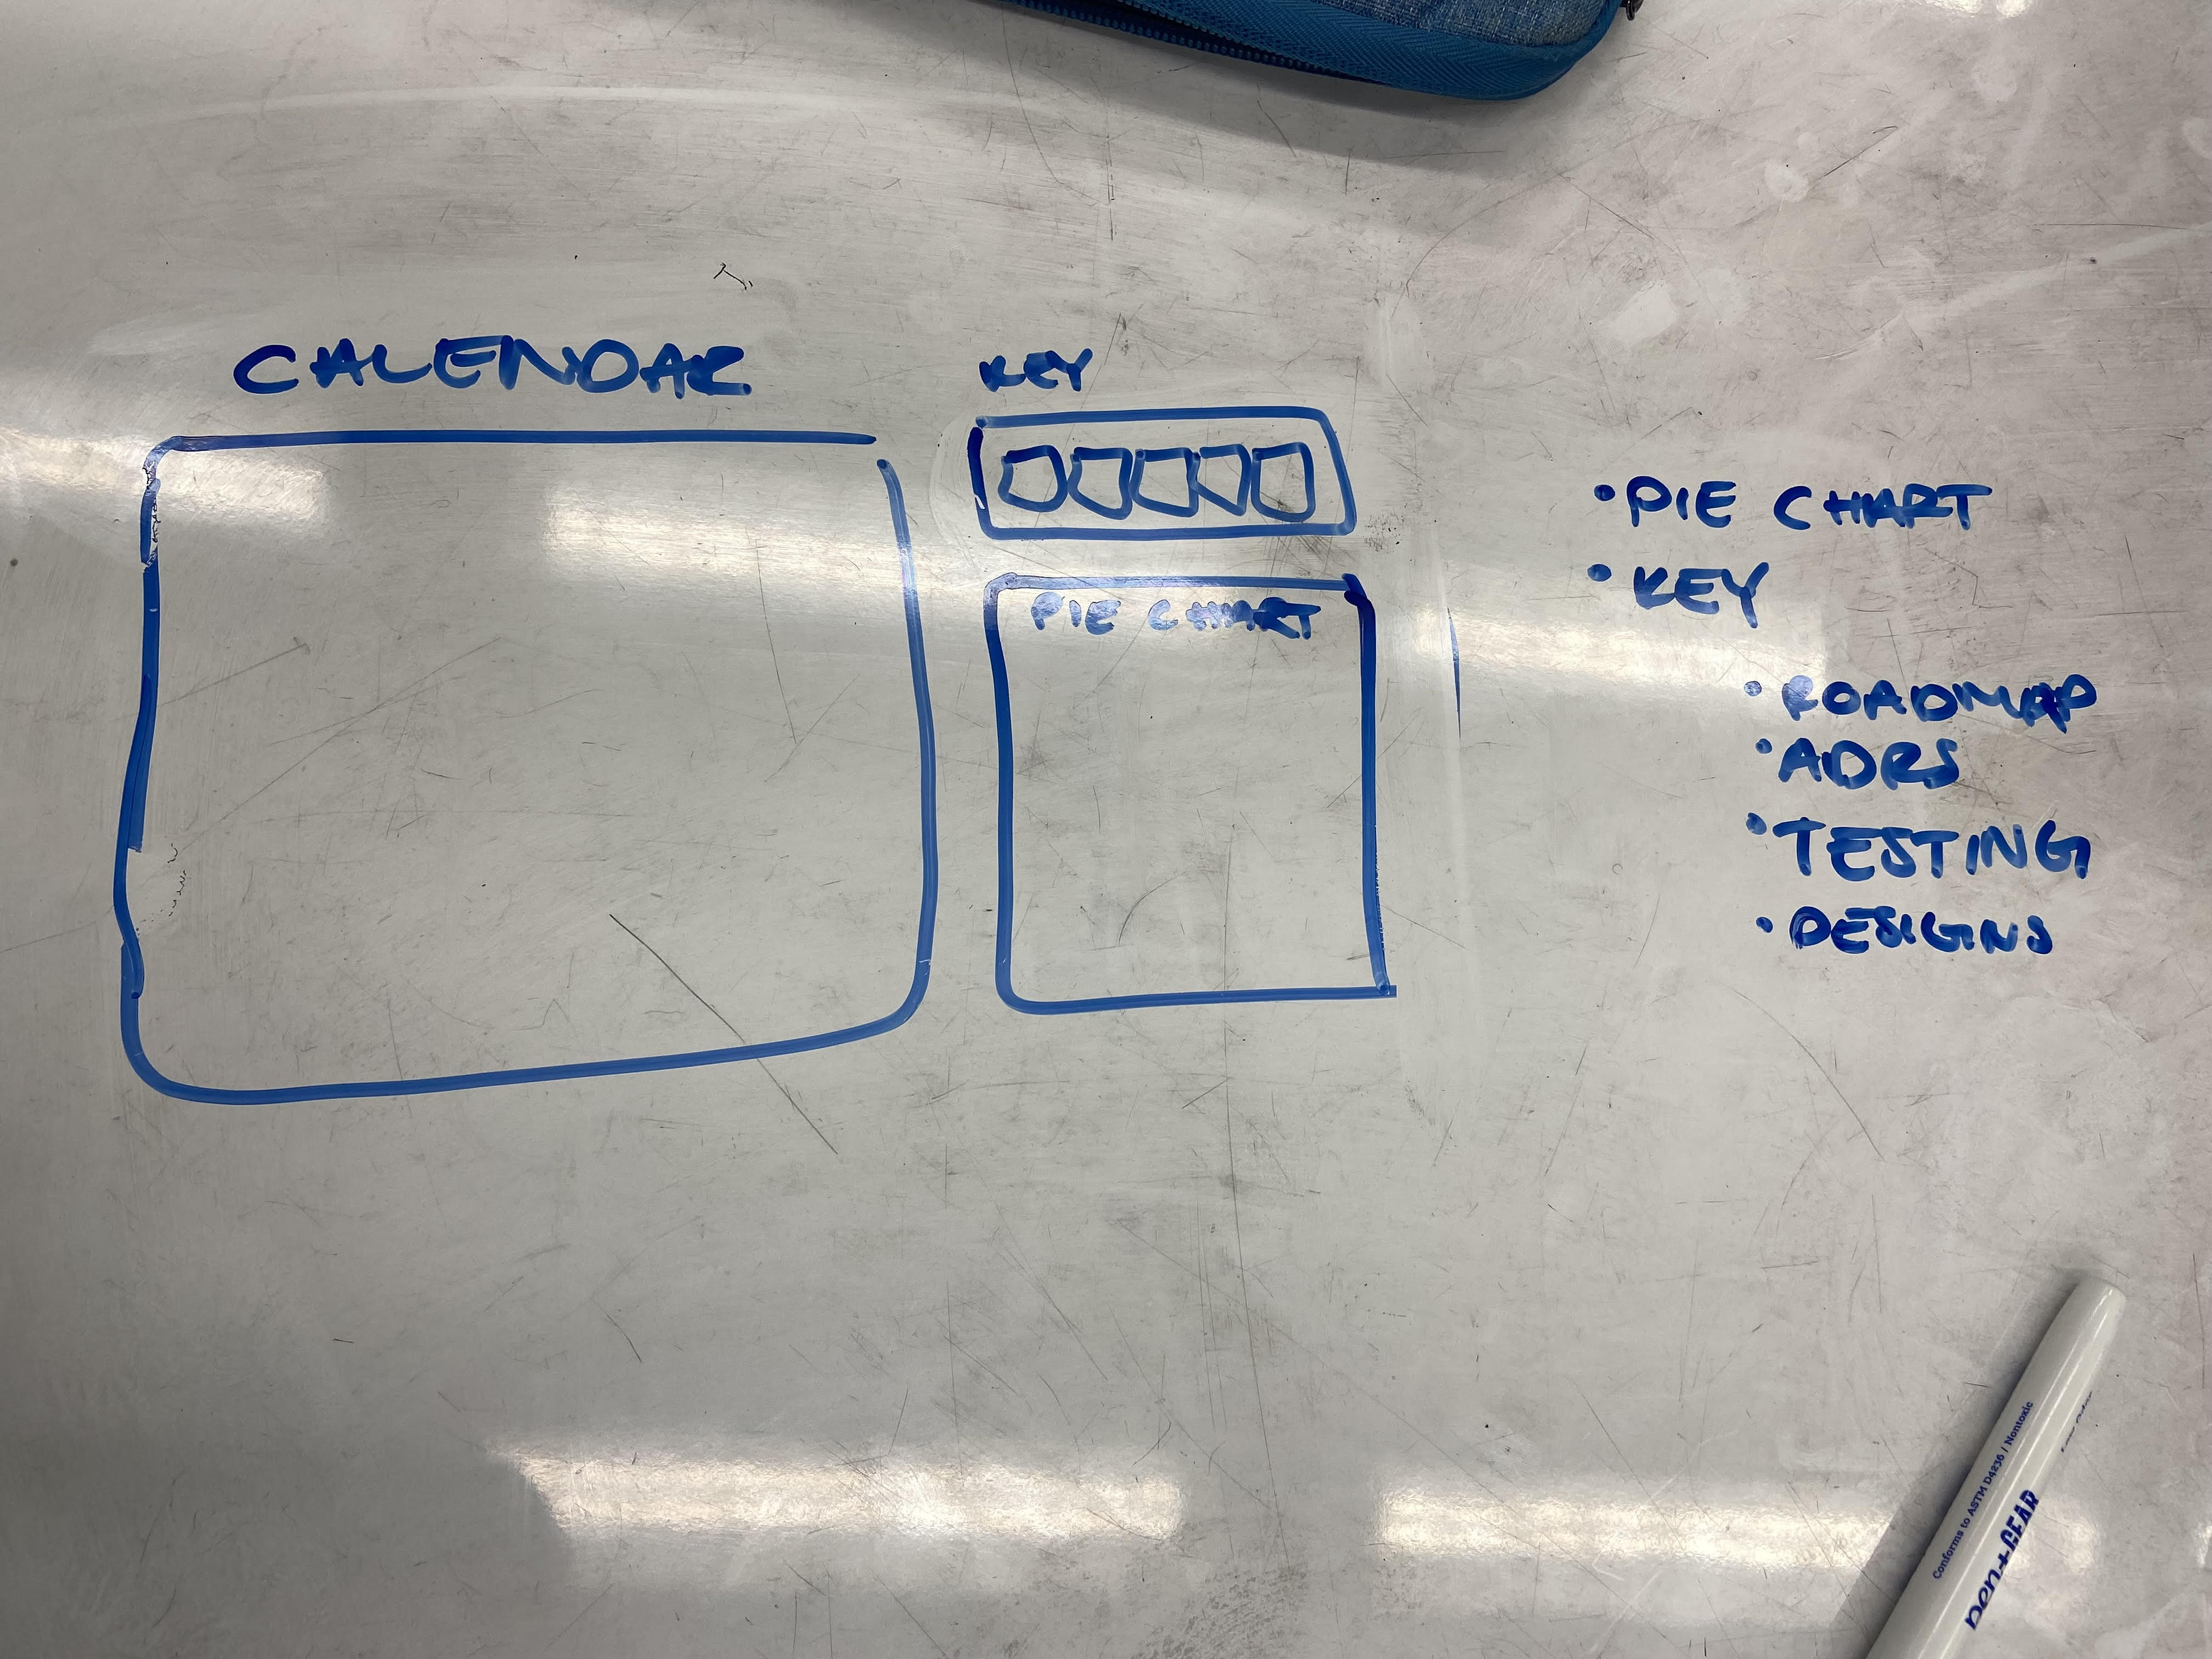 CALENDAR
KEY
PIE CHART
• PIE CHART
• KEY
• ROADMAP
• ADRS
• TESTING
• DESIGNS
Conforms to ASTM D4236 / Nontoxic
pen+GEAR
Low Odor